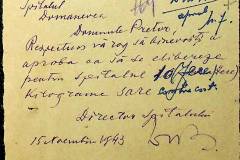 Spitalul
Domanevca
Domnule Pretor,
Respectuos vă rog să binevoiți a
aproba ca să se elibereze
pentru spitalul 10 Zece (Zece)
Kilograme sare
Director Spitalului
15 Noembrie 1943